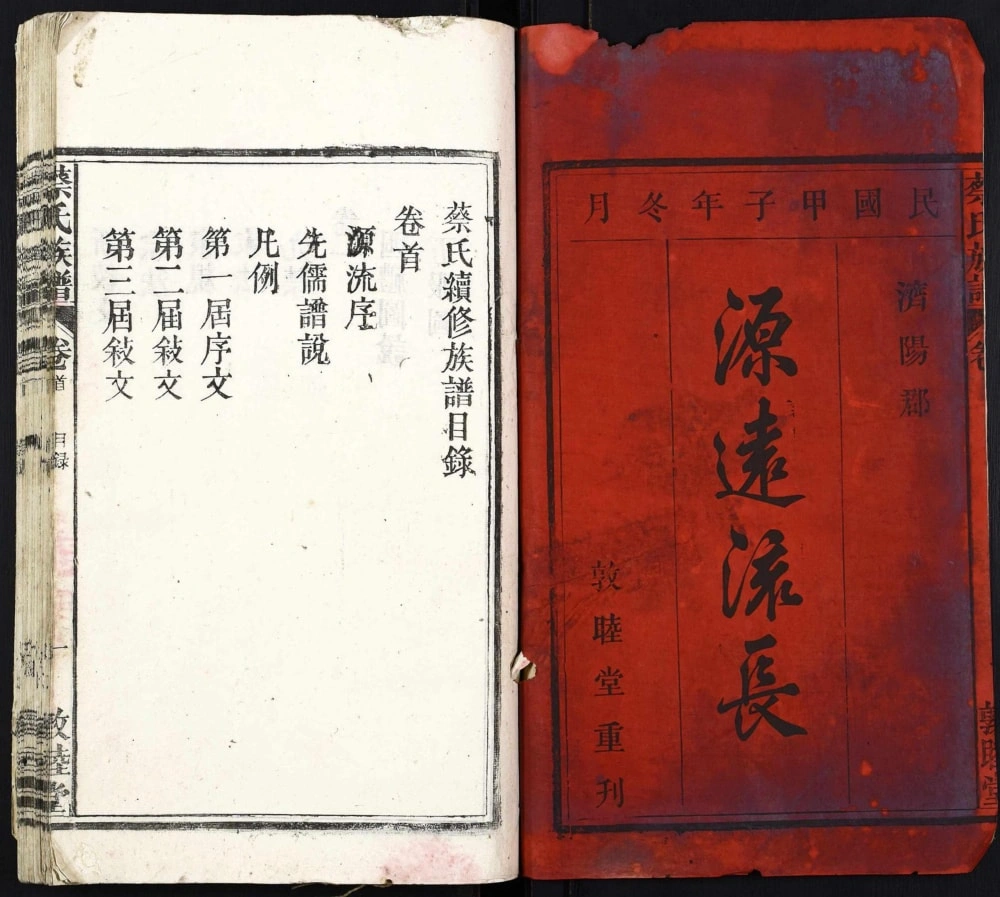 民國甲子年冬月
濟陽郡
源遠流長
敦睦堂重刊
蔡氏族譜
卷
敦睦堂
蔡氏續修族譜目錄
卷首
源流序
先儒譜說
凡例
第一屆序文
第二届敍文
第三屆敍文
蔡氏族譜
卷首
目録
一
敦睦堂